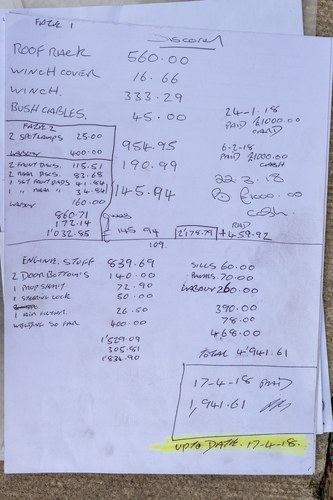 FAZE 1
Discovery
ROOF RACK 560.00
WINCH COVER 16.66
WINCH. 333.29
BUSH CABLES. 45.00
24-1-18
PAID £1000.00
CARD
FAZE 2
2 SPOTLAMPS 25.00
LABOUR 400.00
954.95
190.99
1145.94
6-2-18
PAID £1000.00
CASH
2 FRONT DISCS. 115.51
2 REAR DISCS. 83.68
1 SET FRONT PADS 41.84
1 " REAR " 34.84
LABOUR 160.00
860.71
172.14
1'032.85
22-3-18
PD £1000.00
cash.
1145.94
2'178.79
PAID
+459.92
109.
ENGINE STUFF 839.69
2 DOOR BOTTOM'S 140.00
1 PROP SHAFT 72.90
1 STARTING LOCK 50.00
1 AIR FILTER 26.50
WELDING SO FAR 400.00
1'529.09
305.81
1'834.90
SILLS 60.00
PLATES 70.00
LABOUR 260.00
390.00
78.00
468.00
TOTAL 4'941.61
17-4-18 PAID
1,941.61
UP TO DATE. 17-4-18.